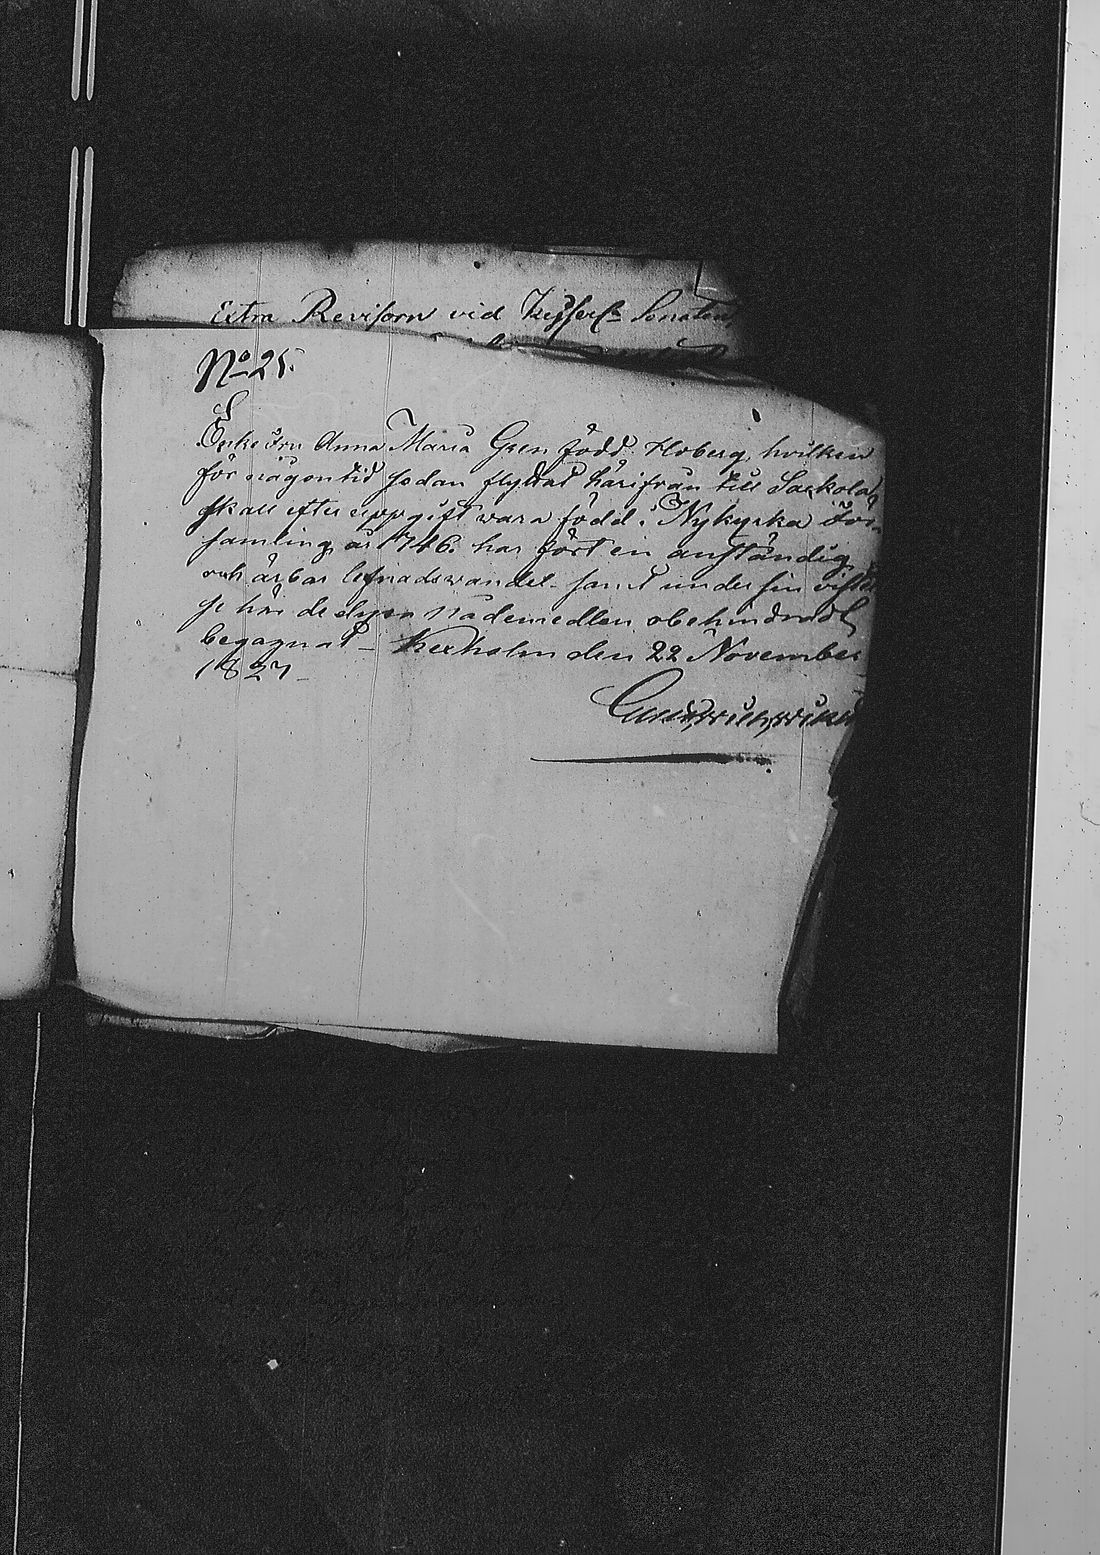 Extra Revisorn vid Kejserl. Senaten,
No 25.
Enke Fru Anna Maria Gren född Hoberg, hvilken
för någon tid sedan flyttat härifrån till Sackola,
skall efter uppgift vara född i Nykyrka För-
samling år 1746. har fört en anständig
och ärbar lefnadsvandel samt under sin vistel-
se här de dyra nådemedlen obehindradt
begagnat – Kexholm den 22 November
1827 –